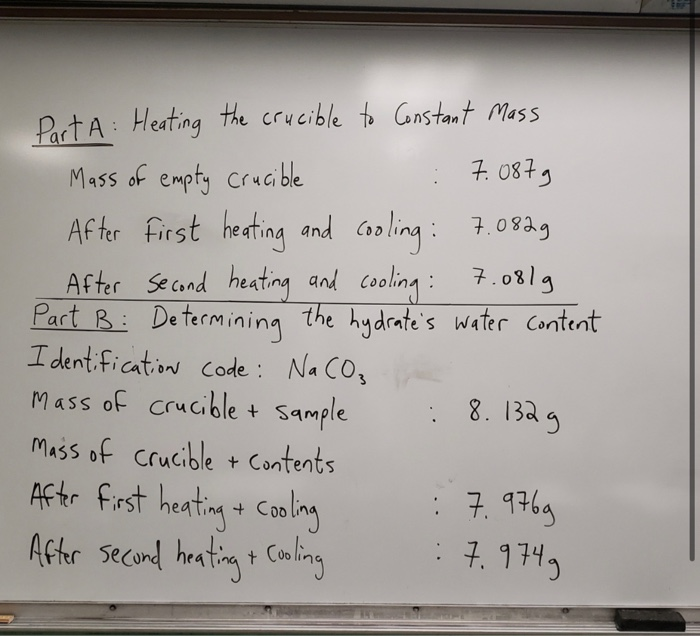 Part A: Heating the crucible to Constant Mass
Mass of empty crucible : 7.087g
After first heating and cooling: 7.082g
After second heating and cooling: 7.081g
Part B: Determining the hydrate's water content
Identification code: NaCO₃
Mass of crucible + sample : 8.132g
Mass of crucible + contents
After first heating + cooling : 7.976g
After second heating + cooling : 7.974g